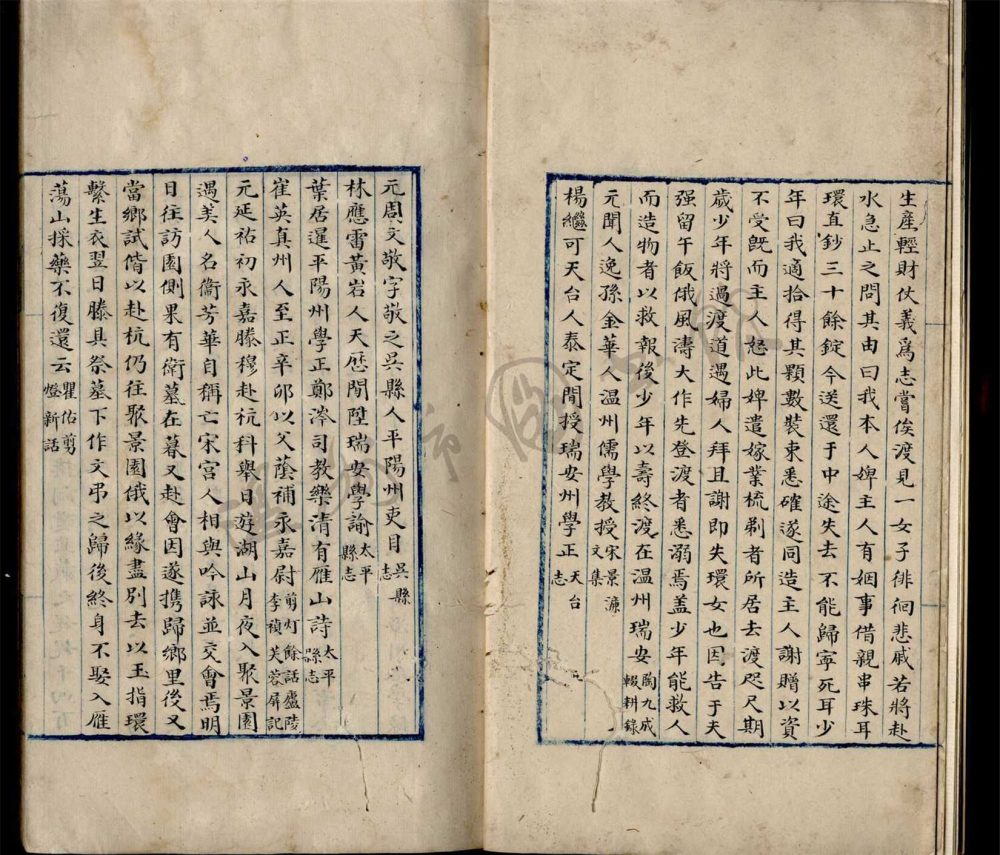 生産輕財仗義爲志嘗俟渡見一女子徘徊悲戚若將赴
水急止之問其由曰我本人婢主人有姻事借親串珠耳
環直鈔三十餘錠今送還于中途失去不能歸寧死耳少
年曰我適拾得其顆數裝束悉確遂同造主人謝贈以資
不受旣而主人怒此婢遣嫁業梳剃者所居去渡咫尺期
歲少年將過渡道遇婦人拜且謝即失環女也因告于夫
强留午飯俄風濤大作先登渡者悉溺焉盖少年能救人
而造物者以救報後少年以壽終渡在温州瑞安陶九成輟耕錄
元聞人逸孫金華人温州儒學教授宋景濂文集
楊繼可天台人泰定間授瑞安州學正天台志
元周文敬字敬之吳縣人平陽州吏目吳縣志
林應雷黃岩人天歷間陞瑞安學諭太平縣志
葉居暹平陽州學正鄭涔司教樂清有雁山詩太平縣志
崔英真州人至正辛卯以父蔭補永嘉尉剪灯餘話廬陵李禎芙蓉屏記
元延祐初永嘉滕穆赴杭科舉日遊湖山月夜入聚景園
遇美人名衞芳華自稱亡宋宮人相與吟詠並交會焉明
日往訪園側果有衛墓在暮又赴會因遂携歸鄉里後又
當鄉試偕以赴杭仍往聚景園俄以緣盡別去以玉指環
繫生衣翌日滕具祭墓下作文弔之歸後終身不娶入雁
蕩山採藥不復還云瞿佑剪燈新話